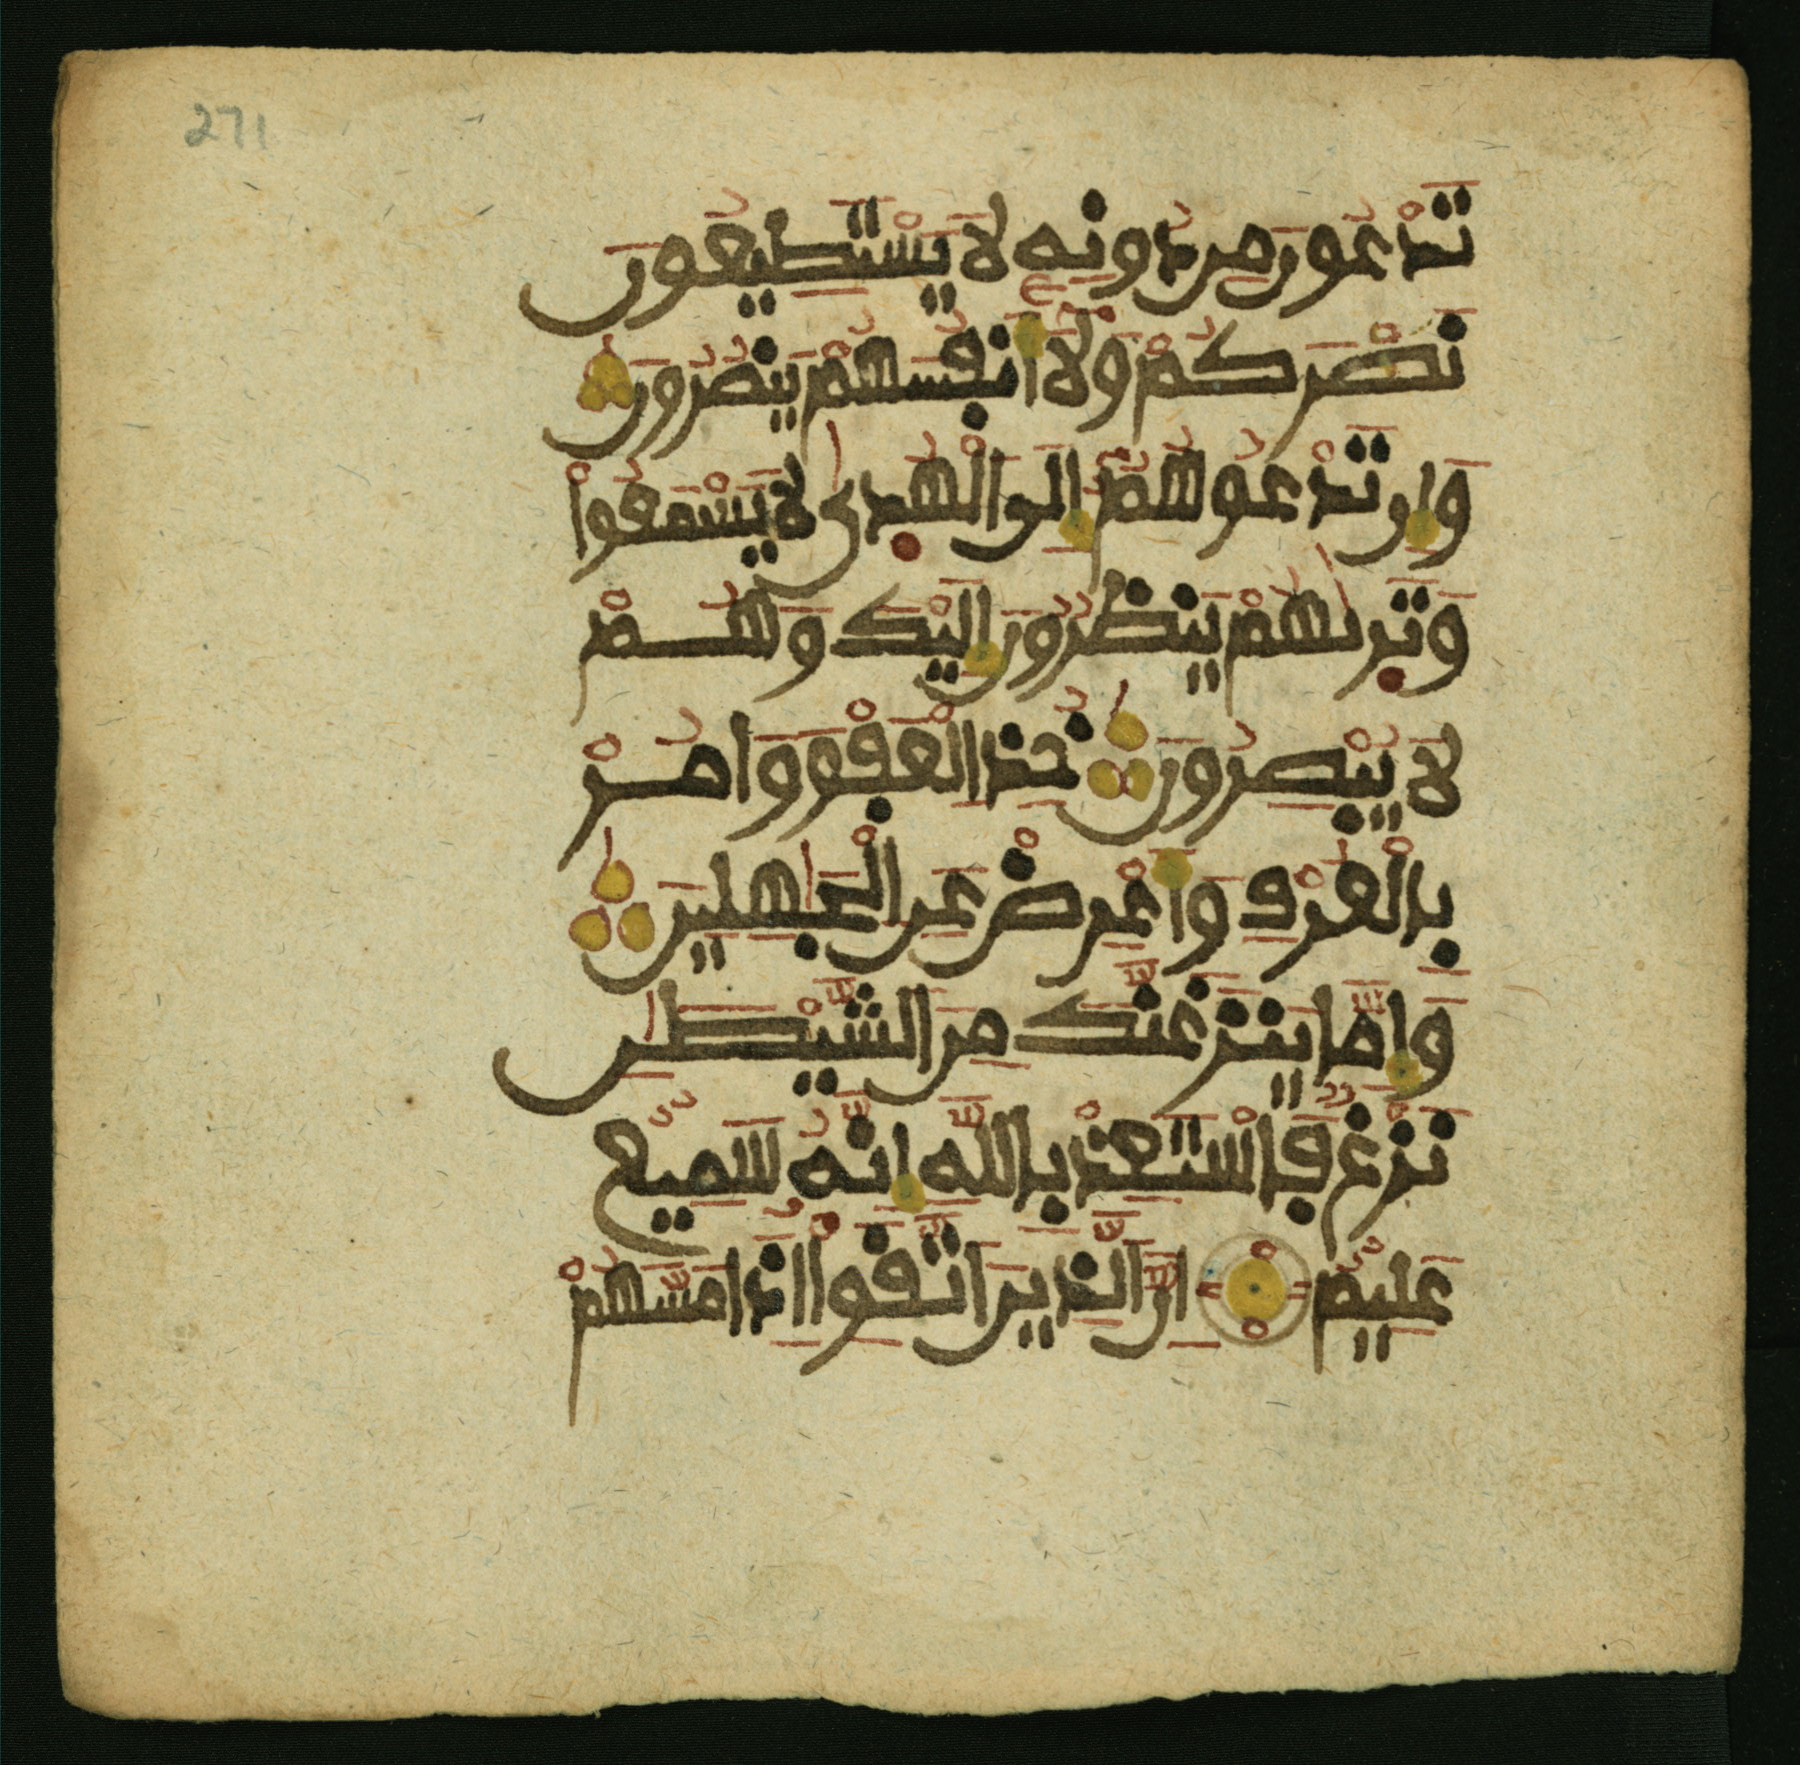 271
تَدْعُونَ مِن دُونِهِ لَا يَسْتَطِيعُونَ
نَصْرَكُمْ وَلَا أَنفُسَهُمْ يَنصُرُونَ
وَإِن تَدْعُوهُمْ إِلَى الْهُدَى لَا يَسْمَعُوا
وَتَرَىهُمْ يَنظُرُونَ إِلَيْكَ وَهُمْ
لَا يُبْصِرُونَ خُذِ الْعَفْوَ وَامُرْ
بِالْعُرْفِ وَأَعْرِضْ عَنِ الْجَهِلِينَ
وَإِمَّا يَنزَغَنَّكَ مِنَ الشَّيْطَنِ
نَزْغٌ فَاسْتَعِذْ بِاللَّهِ إِنَّهُ سَمِيعٌ
عَلِيمٌ إِنَّ الَّذِينَ اتَّقَوْا إِذَا مَسَّهُمْ